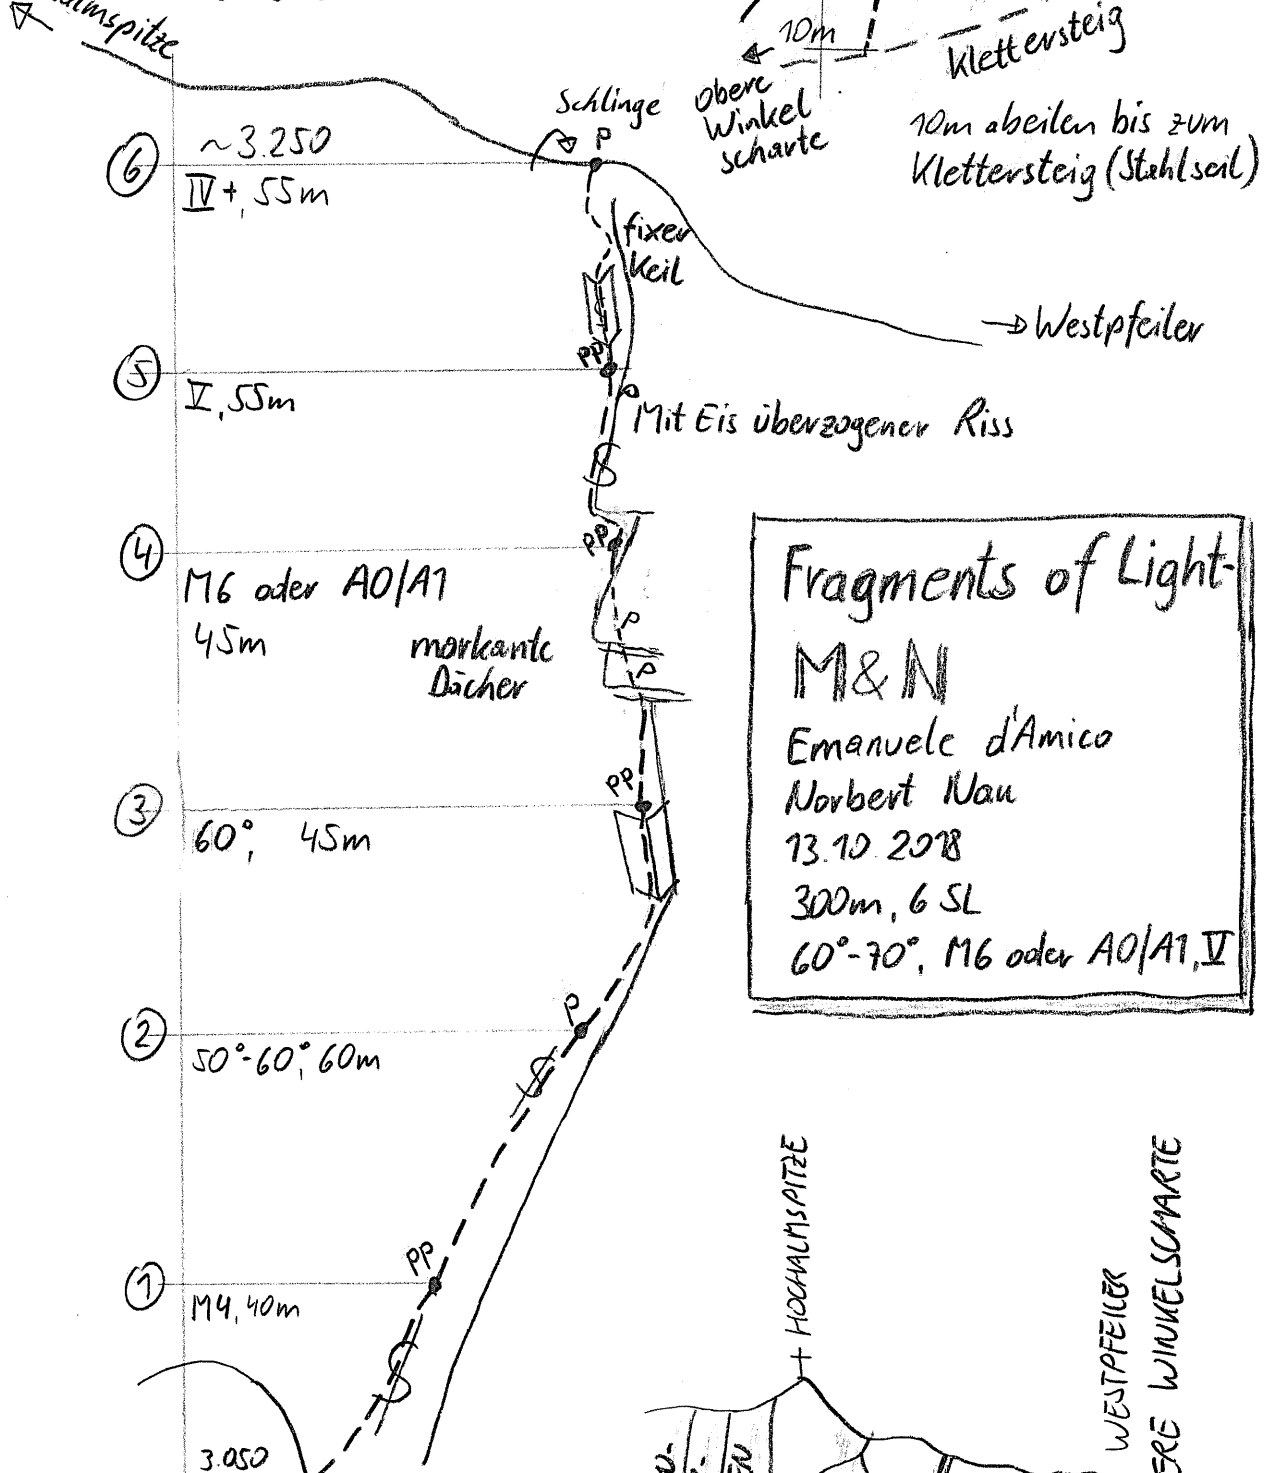 10m
Klettersteig
obere
Winkel
scharte
10m abeilen bis zum
Klettersteig (Stahlseil)
Schlinge
P
6
~3.250
IV+, 55m
fixer
Keil
Westpfeiler
PP
5
V, 55m
P
Mit Eis überzogener Riss
PP
4
M6 oder A0/A1
45m
P
markante
Dächer
P
PP
3
60°, 45m
P
2
50°-60°, 60m
PP
1
M4, 40m
3.050
Fragments of Light-
M&N
Emanuele d'Amico
Norbert Nau
13.10.2018
300m, 6 SL
60°-70°, M6 oder A0/A1, V
+ HOCHALMSPITZE
WESTPFEILER